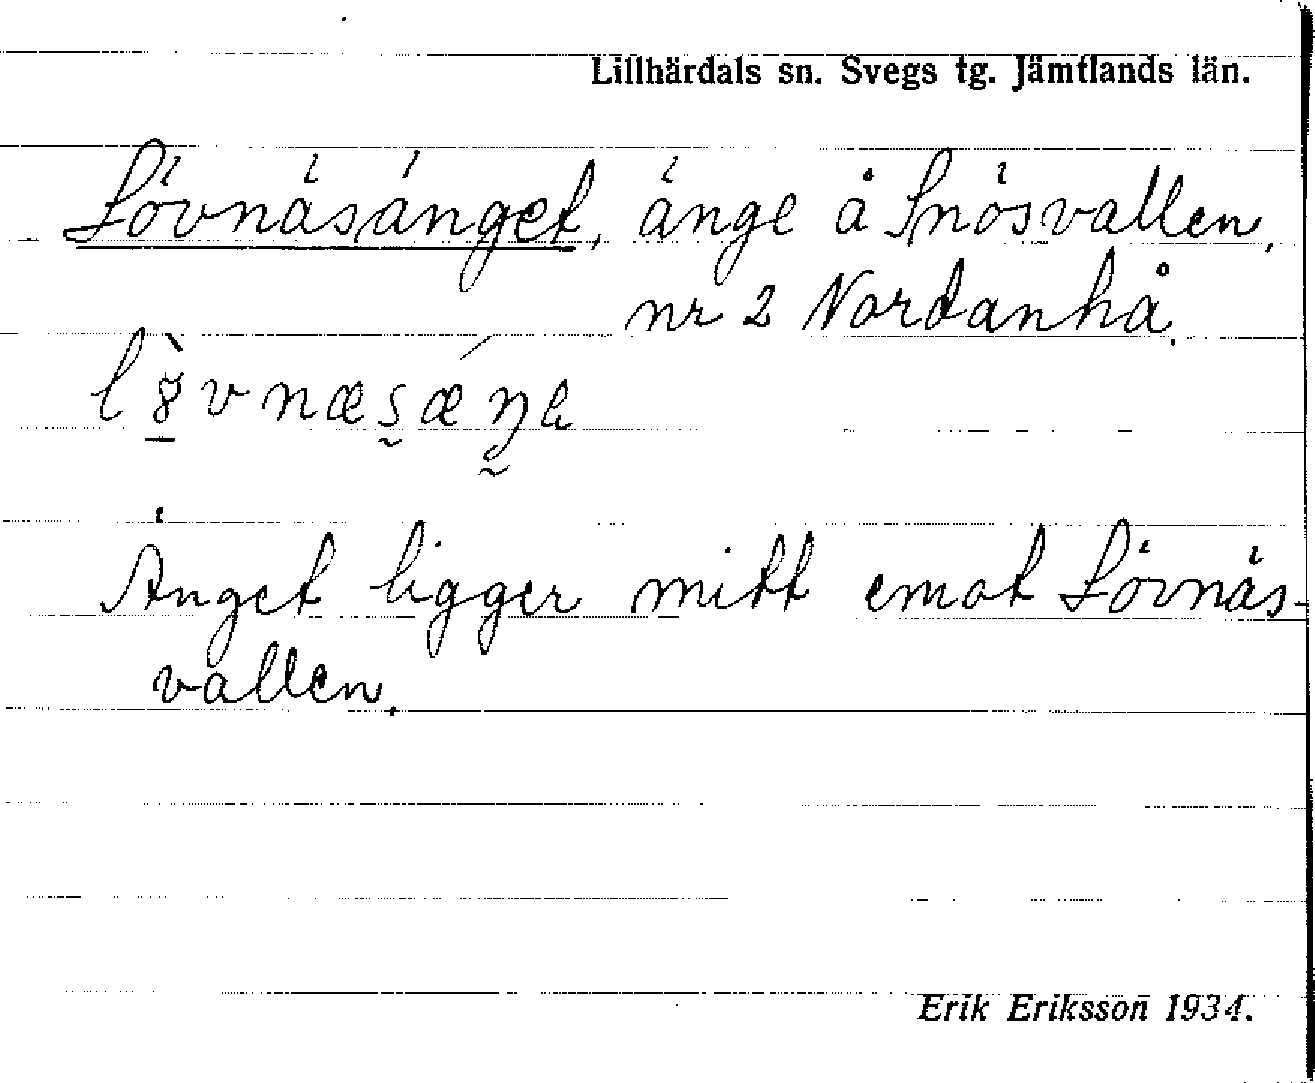 Lillhärdals sn. Svegs tg. Jämtlands län.
Lövnäsänget, änge å Snösvallen,
nr 2 Nordanhå.
Änget ligger mitt emot Lövnäs-
vallen.
Erik Eriksson 1934.